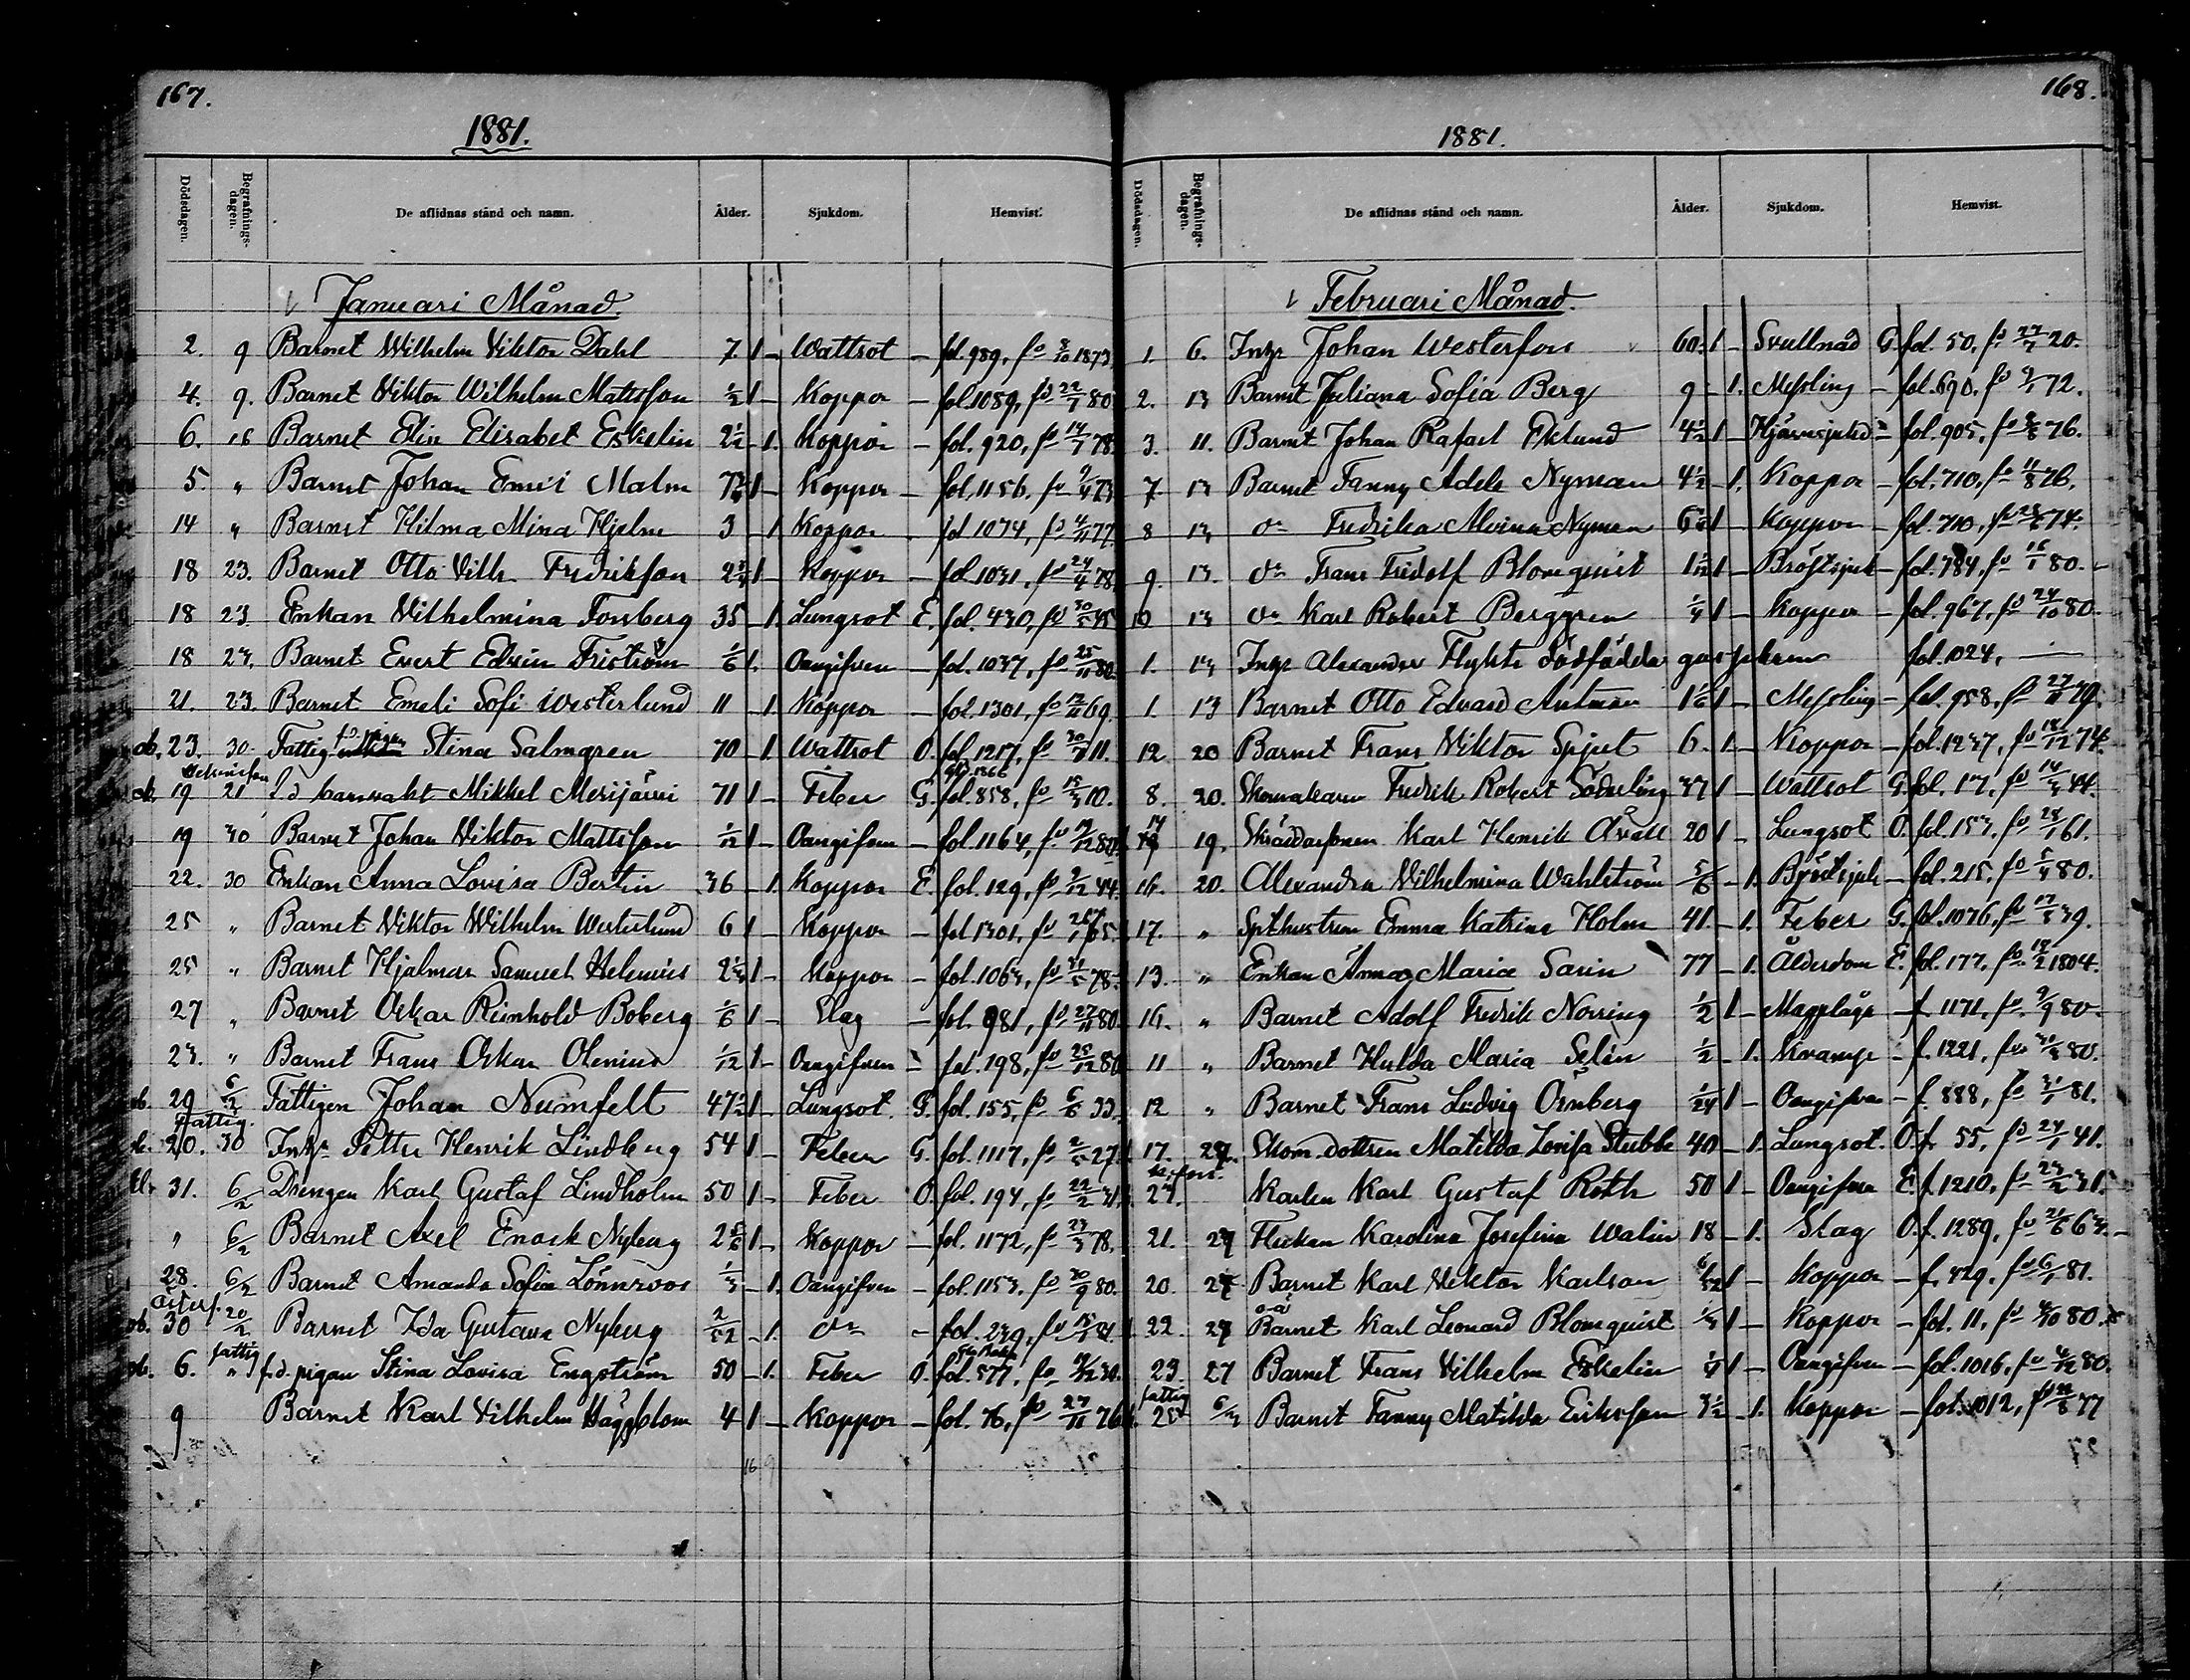 167.
1881.
Dödsdagen. Begrafnings-dagen. De aflidnas stånd och namn. Ålder. Sjukdom. Hemvist.
Januari Månad.
2. 9 Barnet Wilhelm Viktor Dahl 7 1 – Wattsot – fol. 989, 1873
4. 9. Barnet Viktor Wilhelm Mattsson ½ 1 – Koppor – fol. 1089, 22/7 80
6. 16 Barnet Elin Elisabet Eskelin 2½ – 1. Koppor – fol. 920, 14/7 78
5. " Barnet Johan Malm 1 – Koppor – fol. 1156.
14 " Barnet Hilma Mina Hjelm 3 – 1 Koppor fol 1074, 4/11 77.
18 23. Barnet Otto Vilh. Fredriksson 1 – Koppor – fol. 1031, 24/4 78
18 23. Enkan Vilhelmina Forsberg 35 – 1. Lungsot E. fol. 430, 30/5 45
18 23. Barnet Evert Edvin Friström 1/6 1. Oangifven – fol. 1037, 25/11 80.
21. 23. Barnet Emeli Sofi Westerlund 11 – 1. Koppor – fol. 1301, 69.
ob. 23. 30. Fattig f.d. pigan Stina Salmgren 70 – 1. Wattsot O. fol. 1217, 11.
19 21 Mikkel Merijärvi 71 1 – Feber G. fol. 858, 10.
19 30 Barnet Johan Viktor Mattsson 1/12 1 – Oangifven – fol. 1164, 19/12 80
22. 30 Enkan Anna Lovisa Bertin 36 – 1. Koppor E. fol. 129, 9/12 44.
25 " Barnet Viktor Wilhelm Westerlund 6 1 – Koppor – fol 1301,
25 " Barnet Hjalmar Samuel Helenius 1 – Koppor – fol. 1063, 31/5 78.
27 " Barnet Oskar Reinhold Boberg 1/6 1 – Slag – fol. 981, 27/11 80
23. " Barnet Frans Oskar Olenius 1/12 1 – Oangifven – fol. 198, 25/12 80
ob. 29 6/2 Fattigen Johan Numfelt 1 – Lungsot. G. fol. 155, 6/6 33.
Fattig.
20. 30 Inhs Petter Henrik Lindberg 54 1 – Feber G. fol. 1117, 2/5 27
31. 6/2 Drengen Karl Gustaf Lindholm 50 1 – Feber O. fol. 194, 22/2 31
" 6/2 Barnet Axel Enock Nyberg 2 5/6 1 – Koppor – fol. 1172, 23/3 78.
28. 6/2 Barnet Amanda Sofia Lönnroos 1/3 – 1. Oangifven – fol. 1153. 30/9 80.
ob. 30 20/2 Barnet Ida Gustava Nyberg 2/52 – 1. do – fol. 239, 81.
fattig
ob. 6. " f.d. pigan Stina Lovisa Engström 50 – 1. Feber O. fol. 577, 30.
9 Barnet Karl Vilhelm Häggblom 4 1 – Koppor – fol. 76, 27/11 76
168.
1881.
Dödsdagen. Begrafnings-dagen. De aflidnas stånd och namn. Ålder. Sjukdom. Hemvist.
Februari Månad.
1. 6. Inhs Johan Westerfors 60 1 – Svullnad G. fol. 50, 27/7 20.
2. 13 Barnet Juliana Sofia Berg 9 – 1. Messling – fol. 690. 9/1 72.
3. 11. Barnet Johan Rafael Eklund 4½ 1 – – fol. 905, 76.
7. 13 Barnet Fanny Adele Nyman 4½ – 1. Koppor – fol. 710, 11/8 76.
8 13 do Fredrika Alvina Nyman 1 Koppor – fol. 710, 74.
9. 13. do Frans Fridolf Blomquist 1 – Bröstsjuk – fol. 784, 16/1 80.
10 13 do Karl Robert Berggren ¼ 1 – Koppor – fol. 967, 24/10 80
1. 13 Inhs Alexander dödfödda fol. 1024, –
1. 13 Barnet Otto Edvard Antman 1 – Messling – fol. 958, 79.
12 20 Barnet Frans Viktor Spjut 6. 1. – Koppor – fol. 1237, 18/12 74.
8. 20. Skomakaren Fredrik Robert Söderling 37 1 – Wattsot G. fol. 17, 44.
14 19. Skräddarsonen Karl Henrik 20 1 – Lungsot O. fol. 153, 28/1 61.
16. 20. Alexandra Vilhelmina Wahlström 5/6 – 1. Bröstsjuk – fol. 215, 5/4 80.
17. " Emma Katrina Holm 41. – 1. Feber G. fol. 1076, 39.
13. " Enkan Anna Maria Sarin 77 – 1. Ålderdom E. fol. 177, 1804.
16. " Barnet Adolf Fredrik Norring ½ 1 – Magplåga – f. 1171, 9/9 80
11 " Barnet Hulda Maria Selin ½ – 1. Kramp – f. 1221, 80.
12 " Barnet Frans Ludvig Örnberg 1/24 1 – Oangifven – f. 888, 31/1 81.
17. 27. Skom. dottren Matilda Lovisa Stubbe 40 – 1. Lungsot. O. f. 55, 24/1 41.
27. Karlen Karl Gustaf Roth 50 1 – Oangifven E. f. 1210, 23/2 31.
21. 27 Flickan Karolina Josefina Walin 18 – 1. Slag O. f. 1289, 63. –
20. 27 Barnet Karl Viktor Karlsson 6/52 1 – Koppor – f. 429. 6/1 81.
22. 27 Barnet Karl Leonard Blomquist 1/3 1 – Koppor – fol. 11, 80.
23. 27 Barnet Frans Vilhelm Eskelin ¼ 1 – Oangifven – fol. 1016, 80.
fattig
25 6/3 Barnet Fanny Matilda Eriksson 3½ – 1. Koppor – fol. 1012, 77